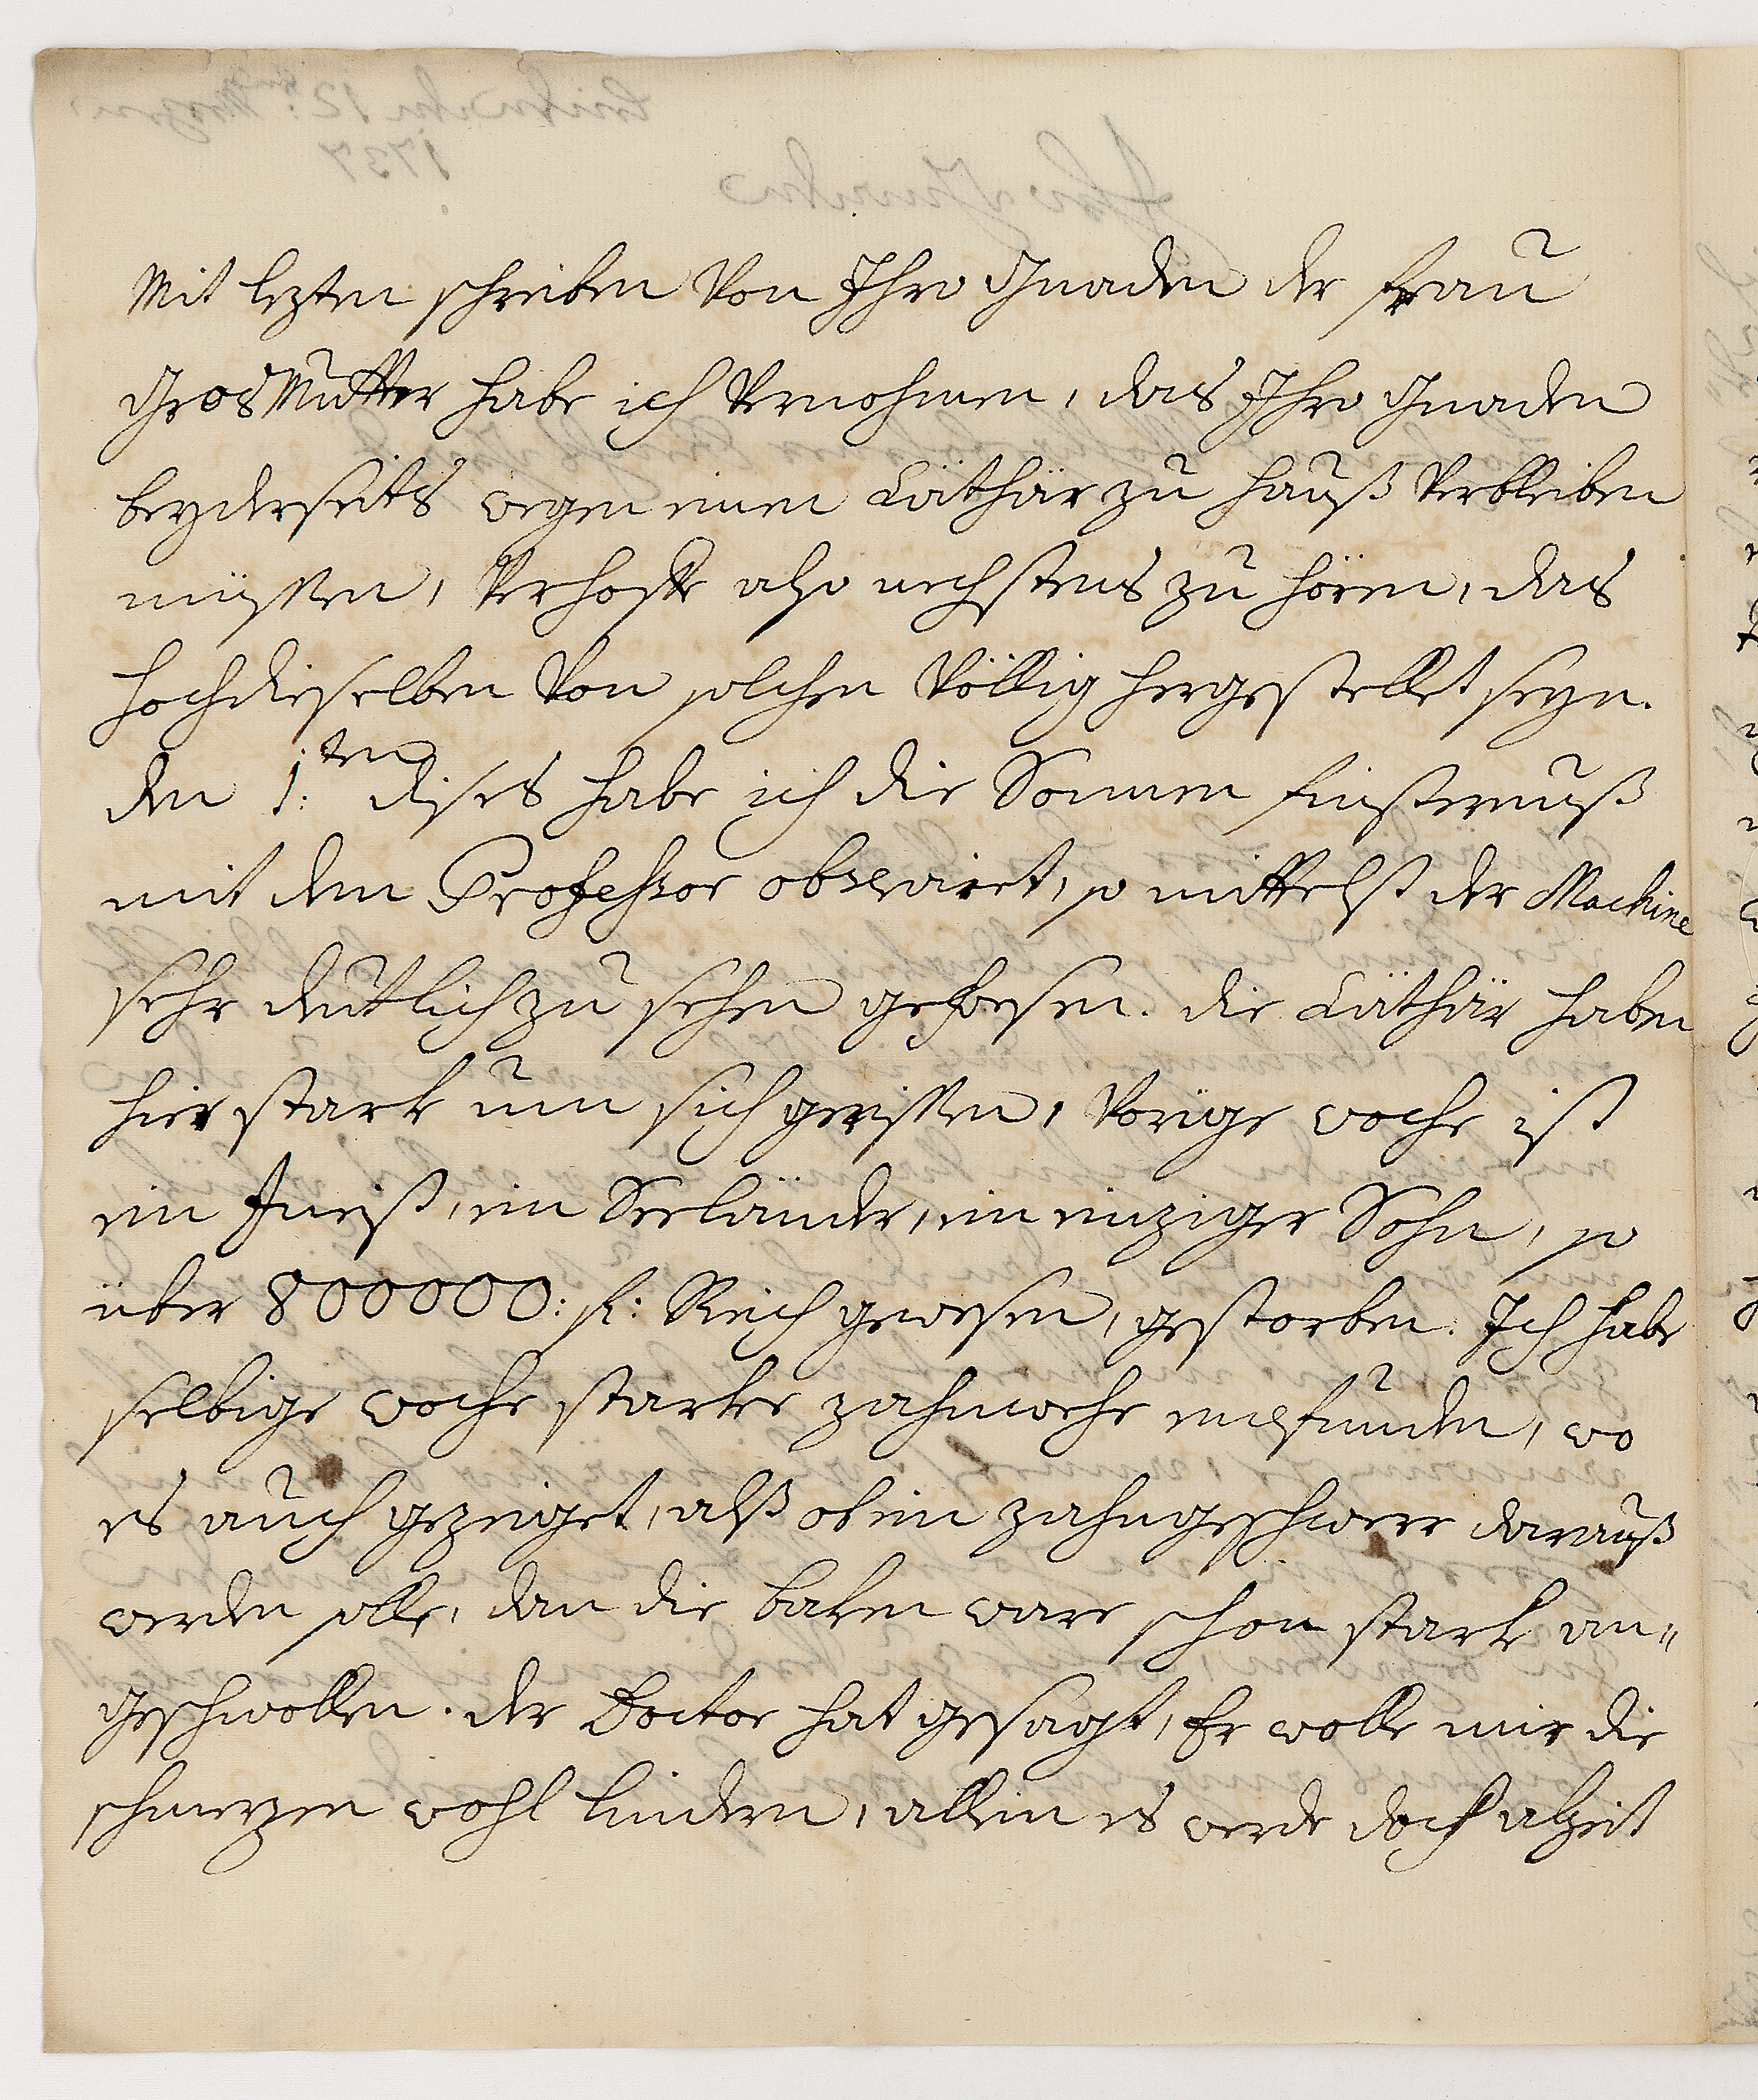 Mit lezten schreiben von Ihro Gnaden der frau
GrosMutter habe ich vernohmen, das Ihro Gnaden
beyderseits wegen einen Cäthär zu hauß verbleiben
müssen, verhoffe also nechstens zu hören, das
hochdieselben von solchen völlig hergestellet seyn.
den 1:ten dises habe ich die Sonnen finsternuß
mit dem Professor observiret, so mittelst der Machine
sehr deutlich zu sehen gewesen. die Cäthär haben
hier stark um sich gerissen, vorige woche ist
ein ein Seeländer, ein einziger Sohn, so
über 800000: fl: Reich gewesen, gestorben. Ich habe
selbige woche starke zahnwehe empfunden, wo
es auch gezeiget, alß ob ein zahngeschwere darauß
werden solle, dan die baken ware schon stark an=
geschwollen. der Doctor hat gesagt, Er wolle mir die
schmerzen wohl lindern, allein es werde doch alzeit